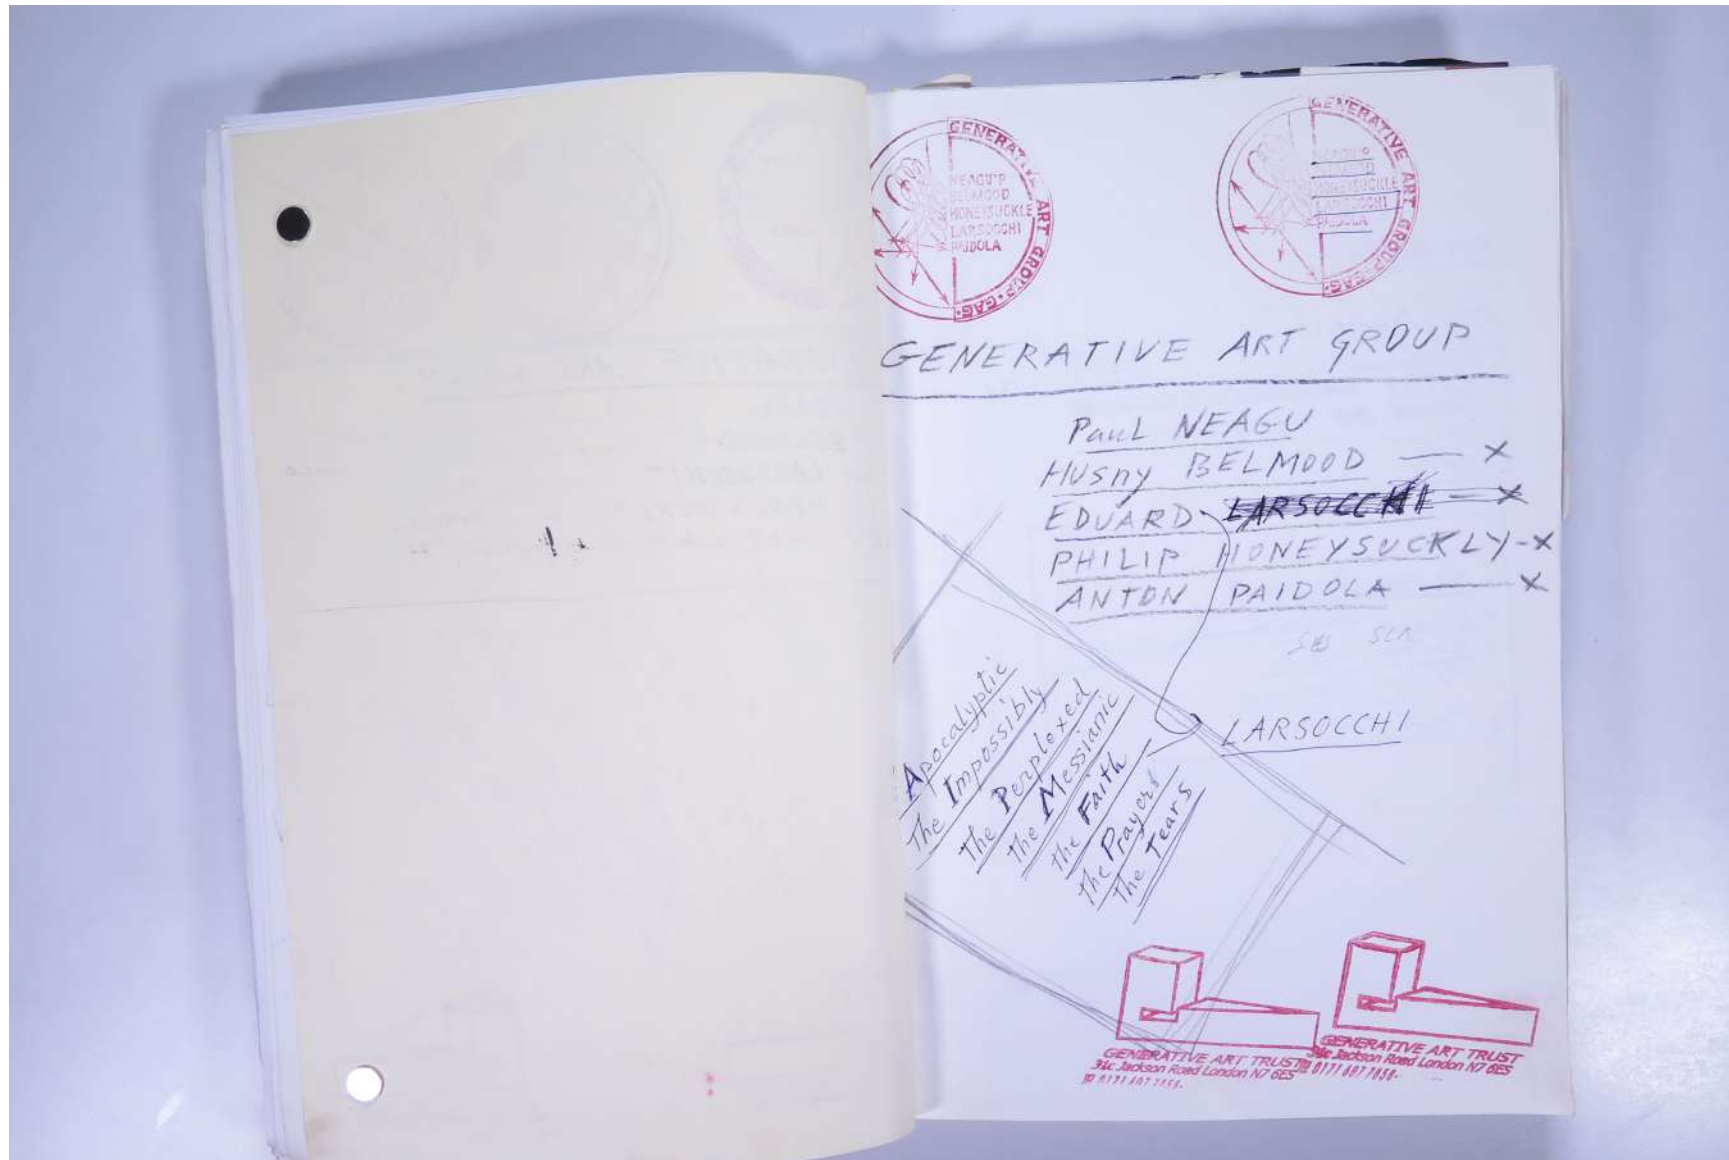 GENERATIVE ART GROUP · GAG ·
NEAGU P
BELMOOD
HONEYSUCKLE
LARSOCCHI
PAIDOLA
GENERATIVE ART GROUP · GAG ·
HONEYSUCKLE
LARSOCCHI
PAIDOLA
GENERATIVE ART GROUP
Paul NEAGU
HUSNY BELMOOD — X
EDUARD LARSOCCHI — X
PHILIP HONEYSUCKLY - X
ANTON PAIDOLA — X
LARSOCCHI
Apocalyptic
The Impossibly
The Perplexed
The Messianic
The Faith
The Prayers
The Tears
GENERATIVE ART TRUST
31c Jackson Road London N7 6ES
GENERATIVE ART TRUST
31c Jackson Road London N7 6ES
Tel 0171 607 7858.